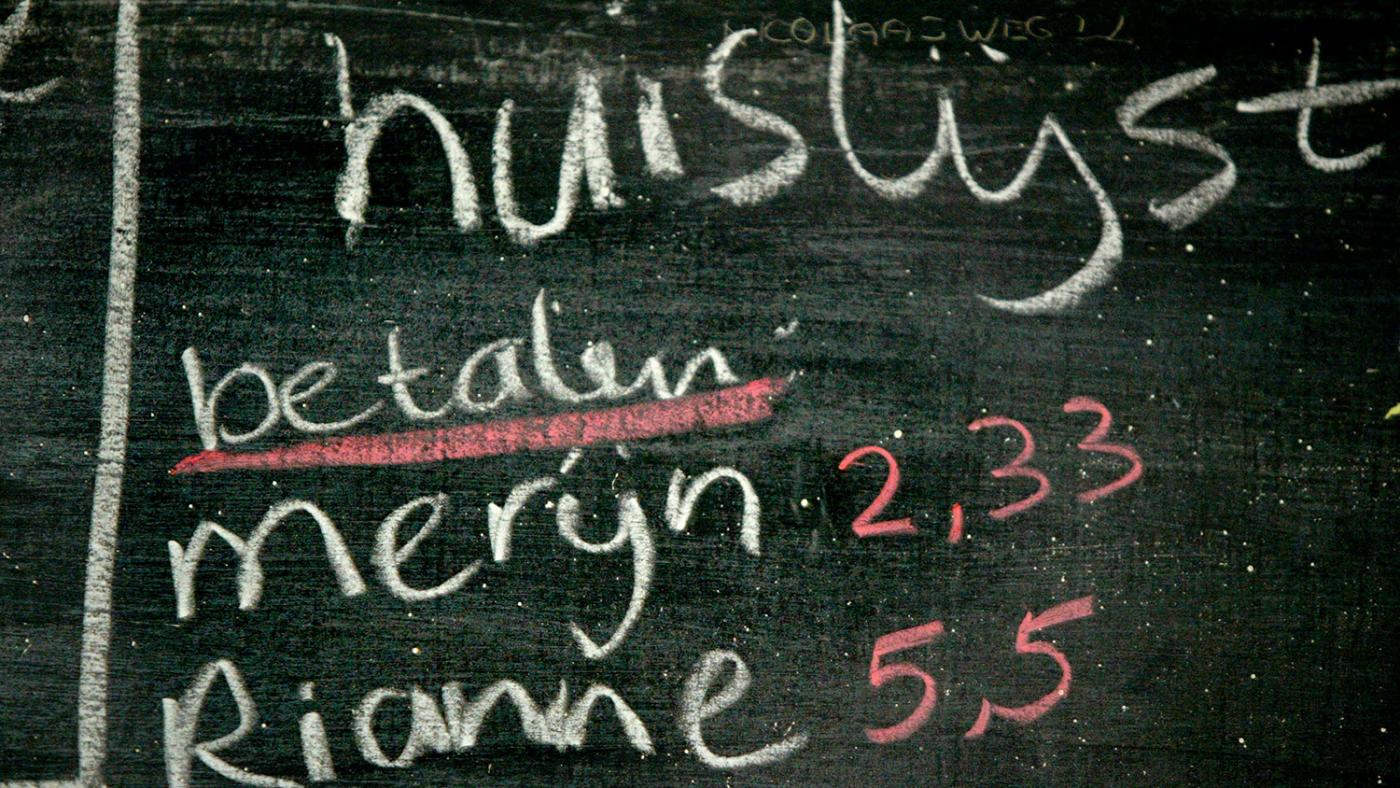 NICOLAAS WEG 22
huislijst
betalen:
merijn 2,33
Rianne 5,5